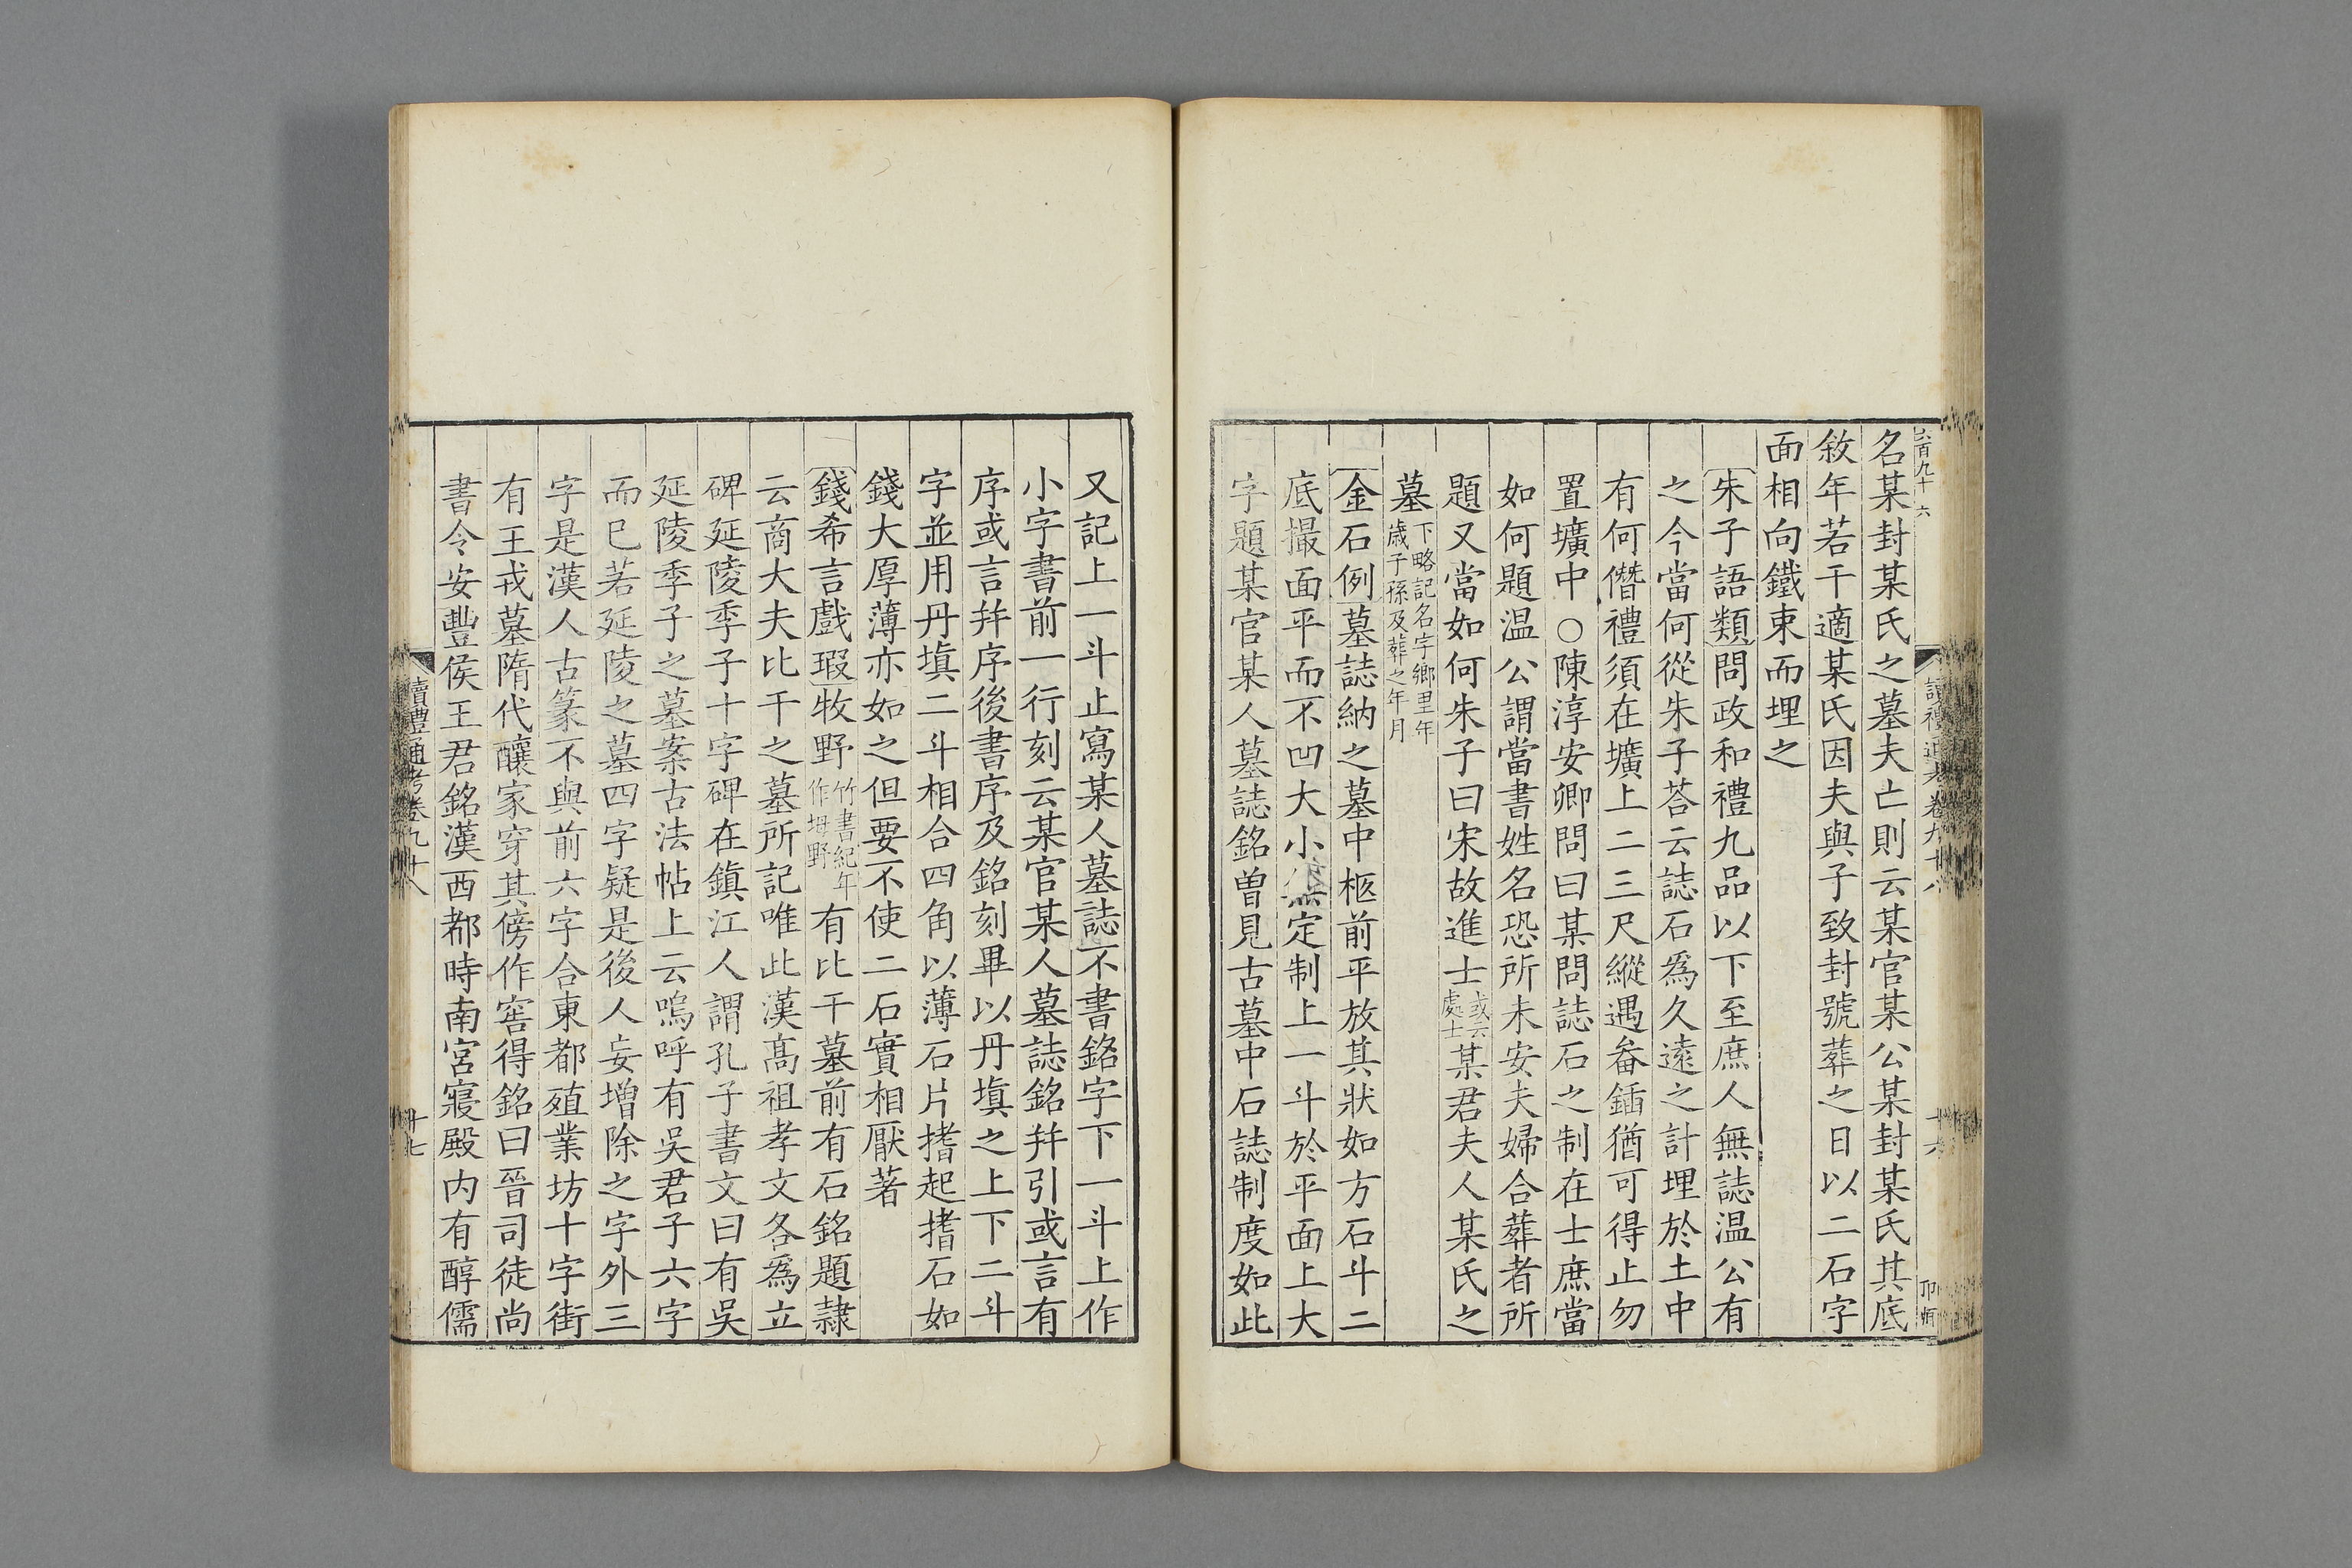 六百九十六
名某封某氏之墓夫亡則云某官某公某封某氏其底
敘年若干適某氏因夫與子致封號葬之日以二石字
面相向鐵束而埋之
朱子語類問政和禮九品以下至庶人無誌温公有
之今當何從朱子荅云誌石爲久遠之計埋於土中
有何僭禮須在壙上二三尺縱遇畚鍤猶可得止勿
置壙中○陳淳安卿問曰某問誌石之制在士庶當
如何題温公謂當書姓名恐所未安夫婦合葬者所
題又當如何朱子曰宋故進士或云處士某君夫人某氏之
墓下略記名字鄉里年歲子孫及葬之年月
金石例墓誌納之墓中柩前平放其狀如方石斗二
底撮面平而不凹大小無定制上一斗於平面上大
字題某官某人墓誌銘曾見古墓中石誌制度如此
又記上一斗止寫某人墓誌不書銘字下一斗上作
小字書前一行刻云某官某人墓誌銘并引或言有
序或言并序後書序及銘刻畢以丹填之上下二斗
字並用丹填二斗相合四角以薄石片揩起揩石如
錢大厚薄亦如之但要不使二石實相厭著
錢希言戲瑕牧野竹書紀年作坶野有比干墓前有石銘題隸
云商大夫比干之墓所記唯此漢髙祖孝文各為立
碑延陵季子十字碑在鎮江人謂孔子書文曰有吳
延陵季子之墓案古法帖上云嗚呼有吳君子六字
而巳若延陵之墓四字疑是後人妄增除之字外三
字是漢人古篆不與前六字合東都殖業坊十字街
有王戎墓隋代釀家穿其傍作窖得銘曰晉司徒尚
書令安豐侯王君銘漢西都時南宮寢殿内有醇儒
讀禮通考卷九十八
十七